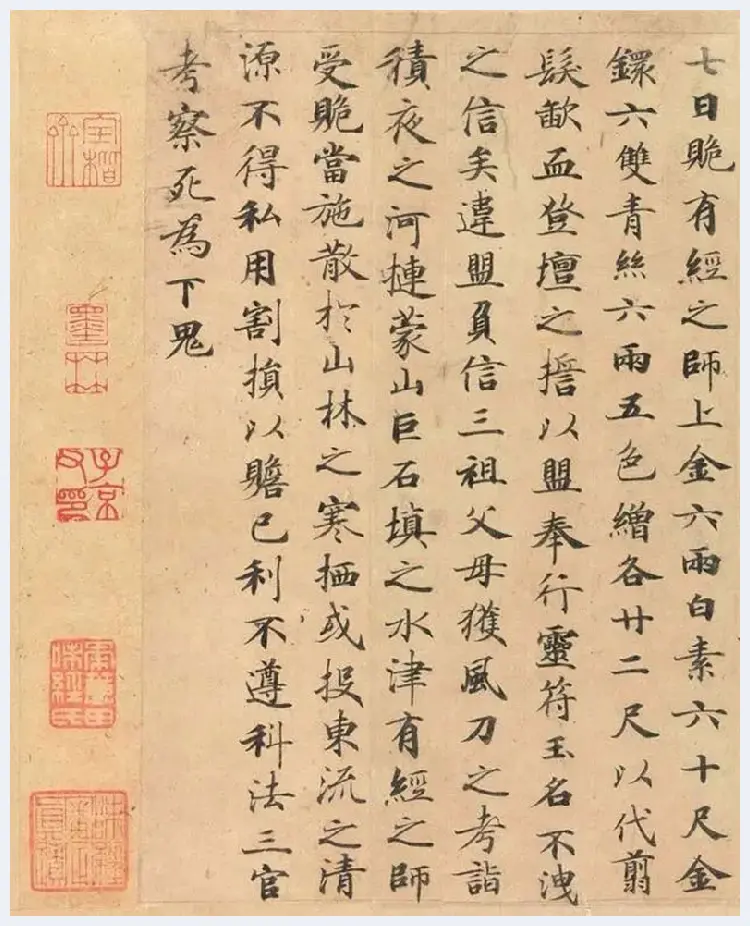 七日賝有經之師上金六兩白素六十尺金
鐶六雙青絲六兩五色繒各廿二尺以代翦
髮歃血登壇之誓以盟奉行靈符玉名不洩
之信矣違盟負信三祖父母獲風刀之考詣
積夜之河揵蒙山巨石填之水津有經之師
受賝當施散於山林之寒栖或投東流之清
源不得私用割損以贍己利不遵科法三官
考察死為下鬼
墨林
子京
父印